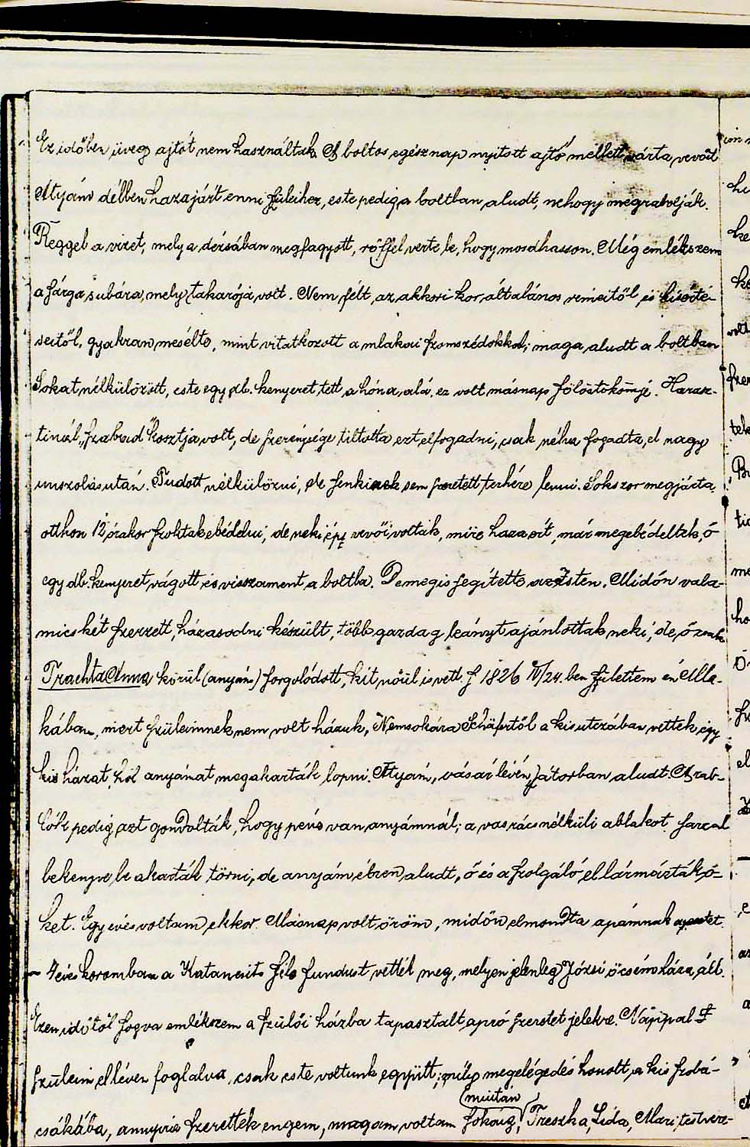 Ez időben üveg ajtót nem használtak. A boltos egész nap nyitott ajtó mellett várta vevőit
Atyám délben hazajárt enni szüleihez, este pedig a boltban aludt, nehogy megrabolják.
Reggel a vizet, mely a dézsában megfagyott, rőffel verte be, hogy mosdhasson. Még emlékszem
a sárga subára, mely takarója volt. Nem félt, az akkori kor általános rémeitől, és kísérte-
seitől, gyakran mesélte, mint vitatkozott a mlakai szomszédokkal; maga aludt a boltban
Sokat nélkülözött, este egy db. kenyeret tett a hóna alá, ez volt másnap fölöstökömjé. Harasz-
tinál „szabad" kosztja volt, de szerénysége tiltotta ezt elfogadni, csak néha fogadta el nagy
unszolás után. Tudott nélkülözni, de senkinek sem szeretett terhére lenni. Sokszor megjárta,
otthon 12 órakor szoktak ebédelni, de neki épp vevői voltak, mire haza ért, már megebédeltek, ő
egy db. kenyeret vágott, és visszament a boltba. De mégis segítette az Isten. Midőn vala-
micskét szerzett, házasodni készült, több gazdag leányt ajánlottak neki, de, ő csak
Trachta Anna körül (anyám) forgolódott, kit nőül is vett. 1826 /24. ben születtem én Mla-
kában, mert szüleimnek nem volt házuk, Nemsokára Schäfertől a kis utczában vettek egy
kis házat, hol anyámat meg akarták lopni. Atyám, vásár lévén sátorban aludt. A rab-
lók pedig azt gondolták, hogy pénz van anyámnál; a vasrács nélküli ablakot sárral
bekenve, be akarták törni, de anyám ébren aludt, ő és a szolgáló ellármázták ő-
ket. Egy éves voltam ekkor. Másnap volt öröm, midőn elmondta apámnak az esetet.
– 4 éves koromban a Katancsits féle fundust vették meg, melyen jelenleg Józsi öcsém háza áll.
Ezen időtől fogva emlékszem a szülői házba tapasztalt apró szeretet jelekre. Nappal
szüleim el lévén foglalva, csak este voltunk együtt; megelégedés honolt, a kis szobá-
miután
csákába, annyira szerettek engem, magam voltam Treszka, Lida, Mari, testvér-